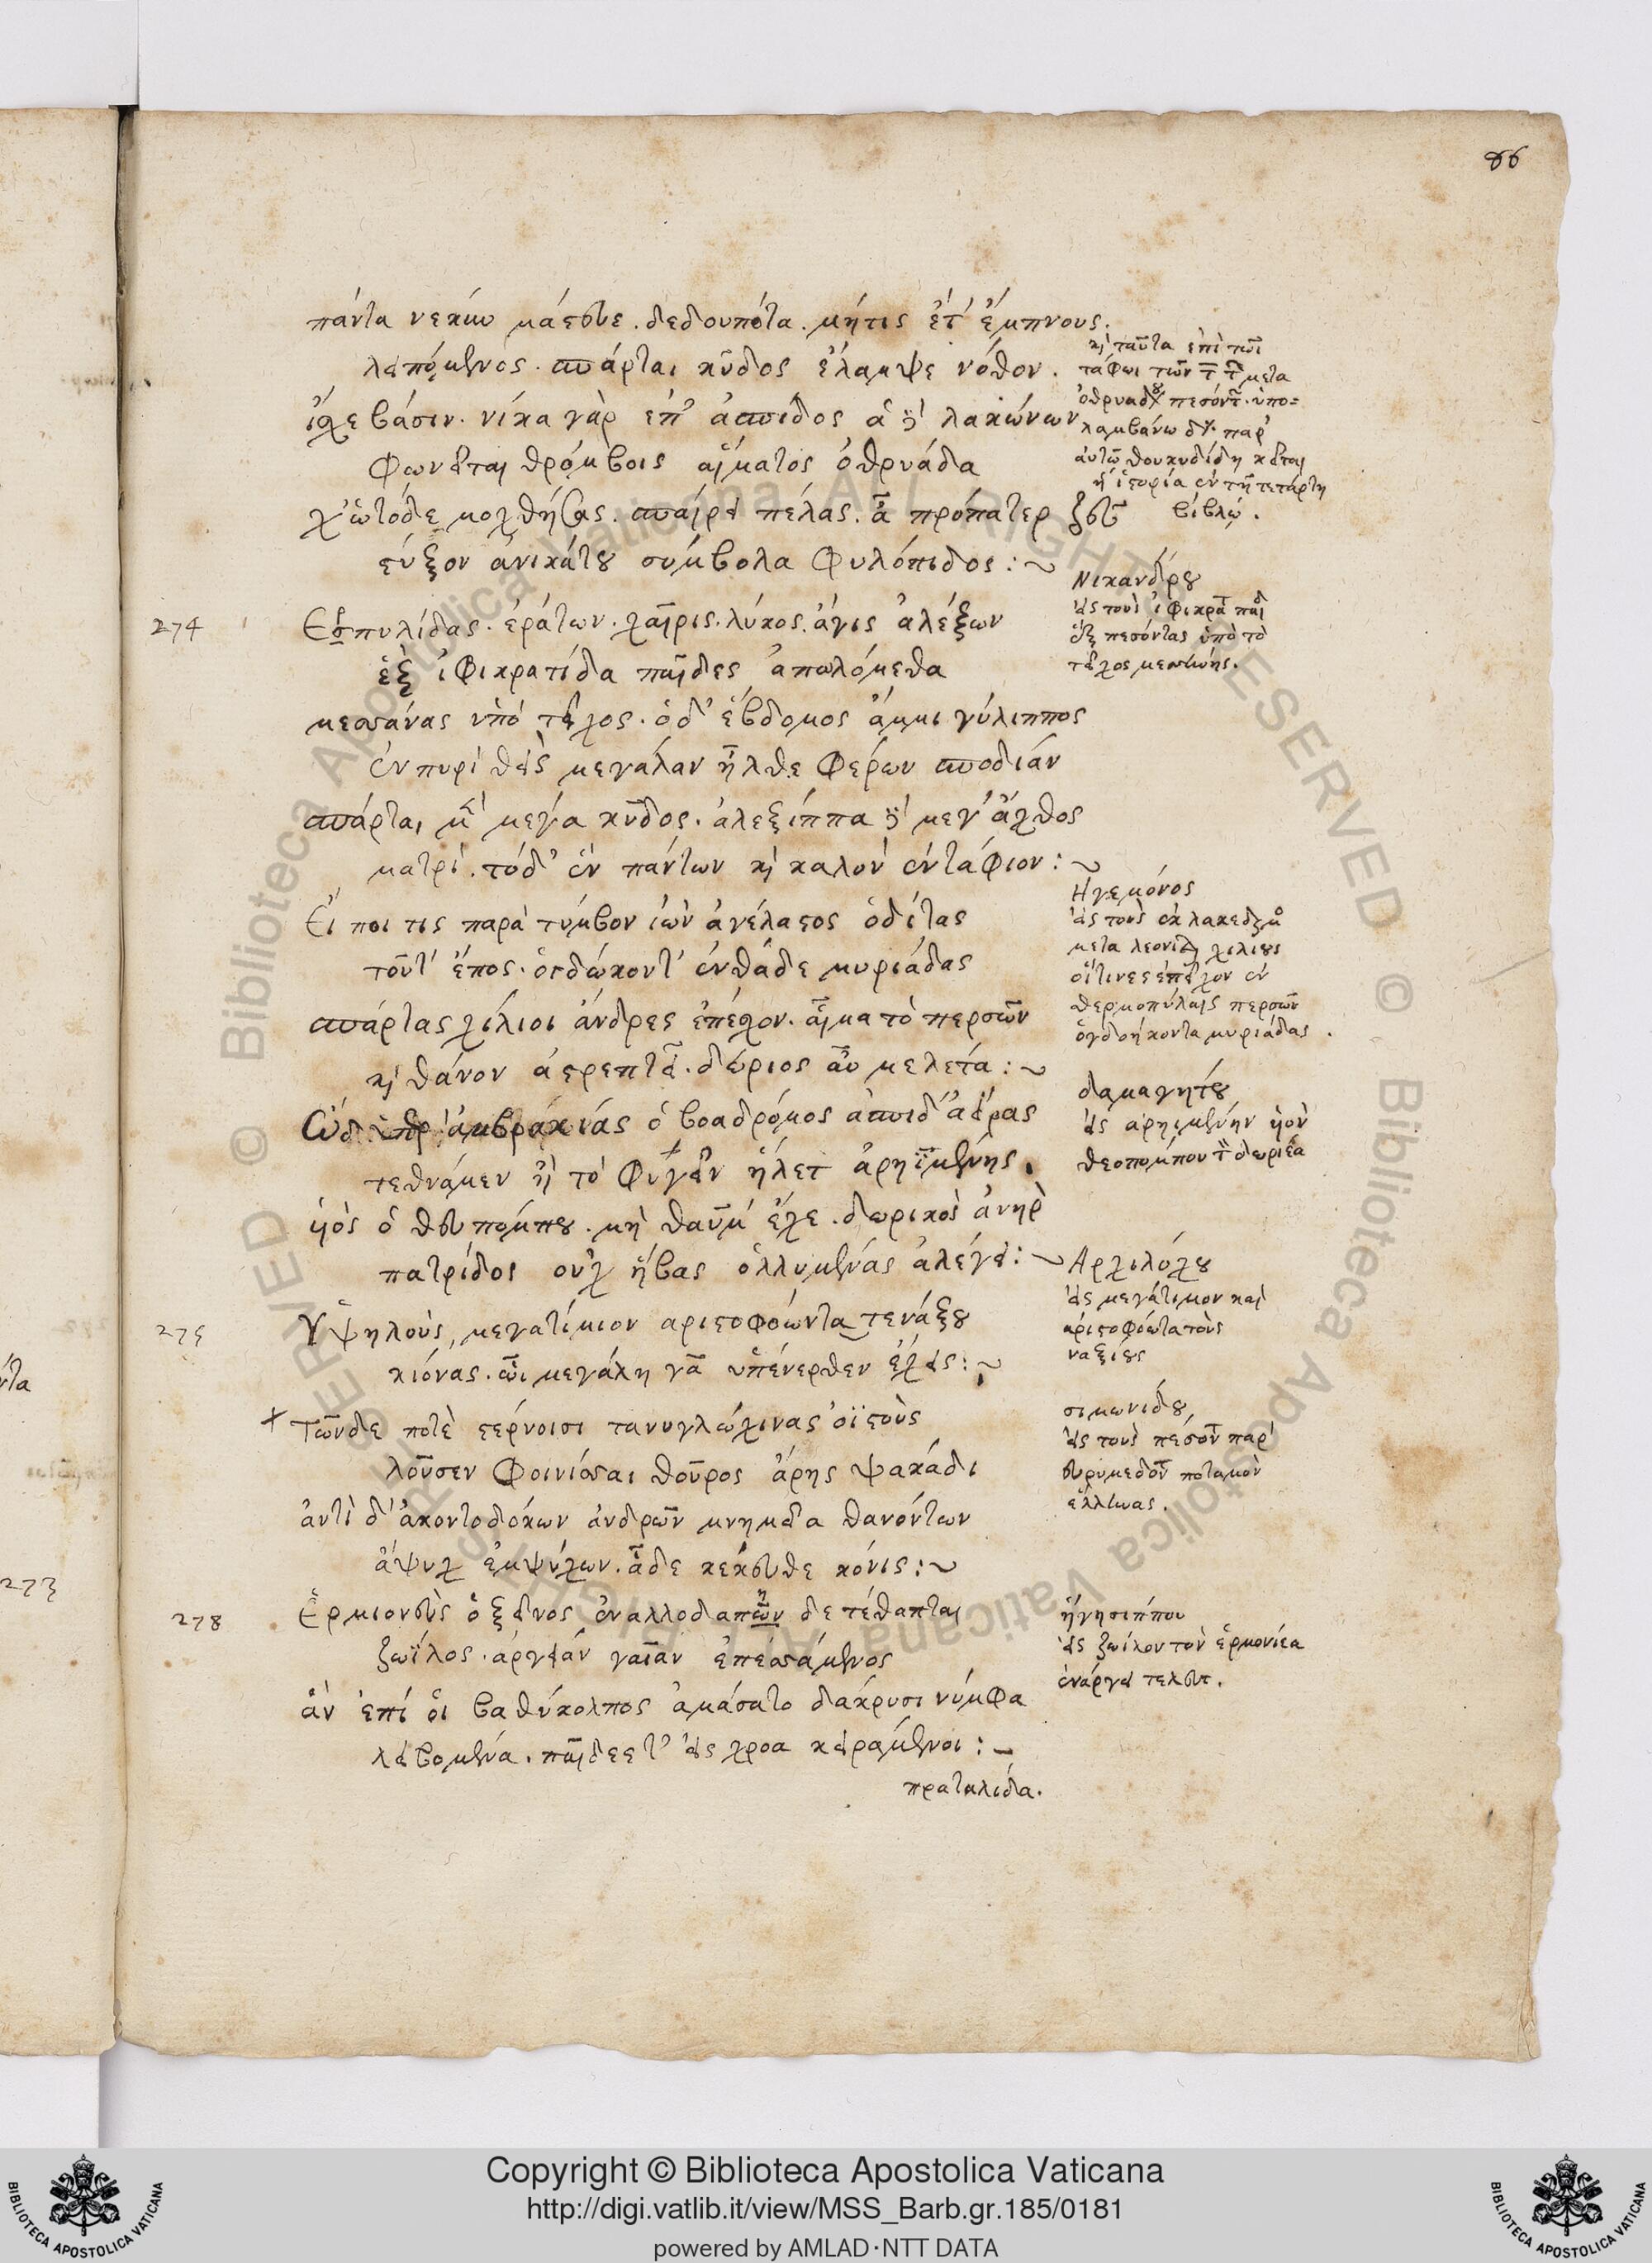 86
πάντα νεκύν μάστευε. δεδουπότα. μήτις ἔτ' ἔμπνους.
λειπόμενος. σπάρται κῦδος ἔλαμψε νόθον.
ἴσχε βάσιν. νίκα γὰρ ἐπ' ἀσπίδος ὧδε λακώνων
φωνεῖται θρόμβοις αἵματος ὀθρυάδα
χ' ὠτόδε μοχθήσας. σπαίρει πέλας. ἆ πρόπατερ ζεῦ
στύξον ἀνικάτου σύμβολα φυλόπιδος:~
καὶ ταῦτα ἐπὶ τῶι
τάφωι τῶν τ μετα
ὀθρυάδου πεσόντ. ὑπο=
λαμβάνω δὲ παρ'
αὐτῶ θουκυδίδη κεῖται
ἡ ἱστορία ἐν τῆ τετάρτη
βίβλω.
274
Εὐπυλίδας. ἐράτων. χαῖρις. λύκος. ἄγις ἀλέξων
ἓξ ἰφικρατίδα παῖδες ἀπωλόμεθα
μεσσάνας ὑπὸ τεῖχος. ὁ δ' ἕβδομος ἄμμι γύλιππος
ἐν πυρὶ θεὶς μεγάλαν ἦλθε φέρων σποδιάν
σπάρται μὲν μέγα κῦδος. ἀλεξίππα δὲ μέγ' ἄχθος
ματρί. τόδ' ἓν πάντων καὶ καλὸν ἐντάφιον:~
Νικάνδρου
εἰς τοὺς ἰφικρατ παῖδ
ἓξ πεσόντας ὑπὸ τὸ
τεῖχος μεσσήνης.
Εἴ ποι τις παρὰ τύμβον ἰὼν ἀγέλαστος ὁδίτας
τοῦτ' ἔπος. ὀγδώκοντ' ἐνθάδε μυριάδας
σπάρτας χίλιοι ἄνδρες ἐπέσχον. αἷμα τὸ περσῶν
καὶ θάνον ἀστρεπτεὶ. δώριος ἁ μελέτα:~
Ἡγεμόνος
εἰς τοὺς ἐκ λακεδαιμο
μετα λεονίδ χιλίους
οἵτινες ἐπέσχον ἐν
θερμοπύλαις περσῶν
ὀγδοήκοντα μυριάδας.
Ὧδ ὑπὲρ ἀμβρακίας ὁ βοαδρόμος ἀσπίδ' ἀείρας
τεθνάμεν ἢ τὸ φυγεῖν ἥλετ ἀρηϊμένης.
υἱὸς ὁ θευπόμπου. μὴ θαῦμ' ἔχε. δωρικὸς ἀνὴρ
πατρίδος οὐχ ἥβας ὀλλυμένας ἀλέγει:~
δαμαγήτου
εἰς ἀρηιμένην υἱὸν
θεοπόμπου τ δωριέα
275
Ὑψηλοὺς, μεγατίμιον ἀριστοφόωντα τενάξου
κιόνας. ὦ μεγάλη γᾶ ὑπένερθεν ἔχεις:~
Ἀρχιλόχου
εἰς μεγάτιμον καὶ
ἀριστοφόωτα τοὺς
ναξίους
Τῶνδε ποτὲ στέρνοισι τανυγλώχινας ὀϊστοὺς
λοῦσεν φοινίσσαι θοῦρος ἄρης ψακάδι
ἀντὶ δ' ἀκοντοδόκων ἀνδρῶν μνημεῖα θανόντων
ἄψυχ ἐμψύχων. ἅδε κέκευθε κόνις:~
σιμωνίδου,
εἰς τοὺς πεσόντ παρ'
εὐρυμέδοντ ποταμὸν
ἕλληνας.
278
Ἑρμιονεὺς ὁ ξεῖνος ἐν ἀλλοδαπῶν δε τέθαπται
ζωΐλος. ἀργείαν γαῖαν ἐπεσσάμενος
ἃν ἐπί οἱ βαθύκολπος ἀμάσατο δάκρυσι νύμφα
λειβομένα. παῖδες τ' εἰς χρόα κειράμενοι:~
ἡγησίππου
εἰς ζωίλον τὸν ἑρμονιέα
ἐν ἄργει τελευτ.
πραταλίδα.
Copyright © Biblioteca Apostolica Vaticana
http://digi.vatlib.it/view/MSS_Barb.gr.185/0181
powered by AMLAD·NTT DATA